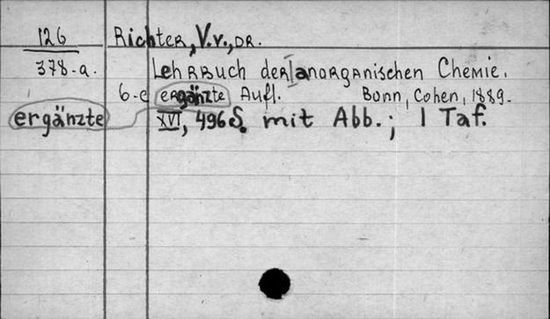 126 Richter, V.v., Dr.
378-a. Lehrbuch der anorganischen Chemie.
6-e ergänzte Aufl. Bonn, Cohen, 1889.
ergänzte XVI, 496 S. mit Abb.; 1 Taf.